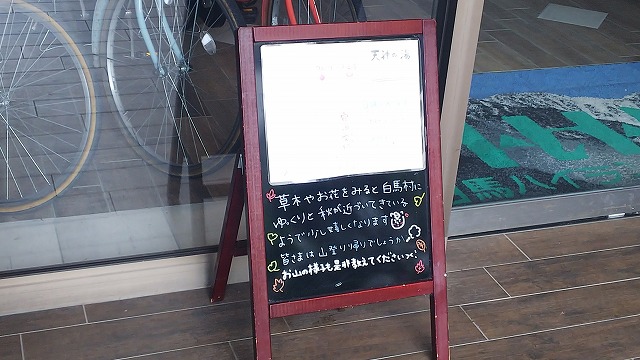 天神の湯
草木やお花をみると白馬村に
ゆっくりと秋が近づいてきている
ようで少し嬉しくなります
皆さまは山登り帰りでしょうか
お山の様子も是非教えてください
馬ハイ